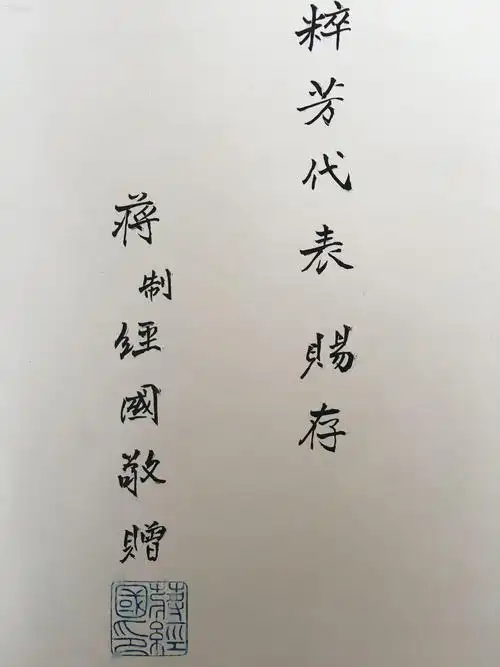 粹芳代表賜存
蔣制經國敬贈
蔣經國印